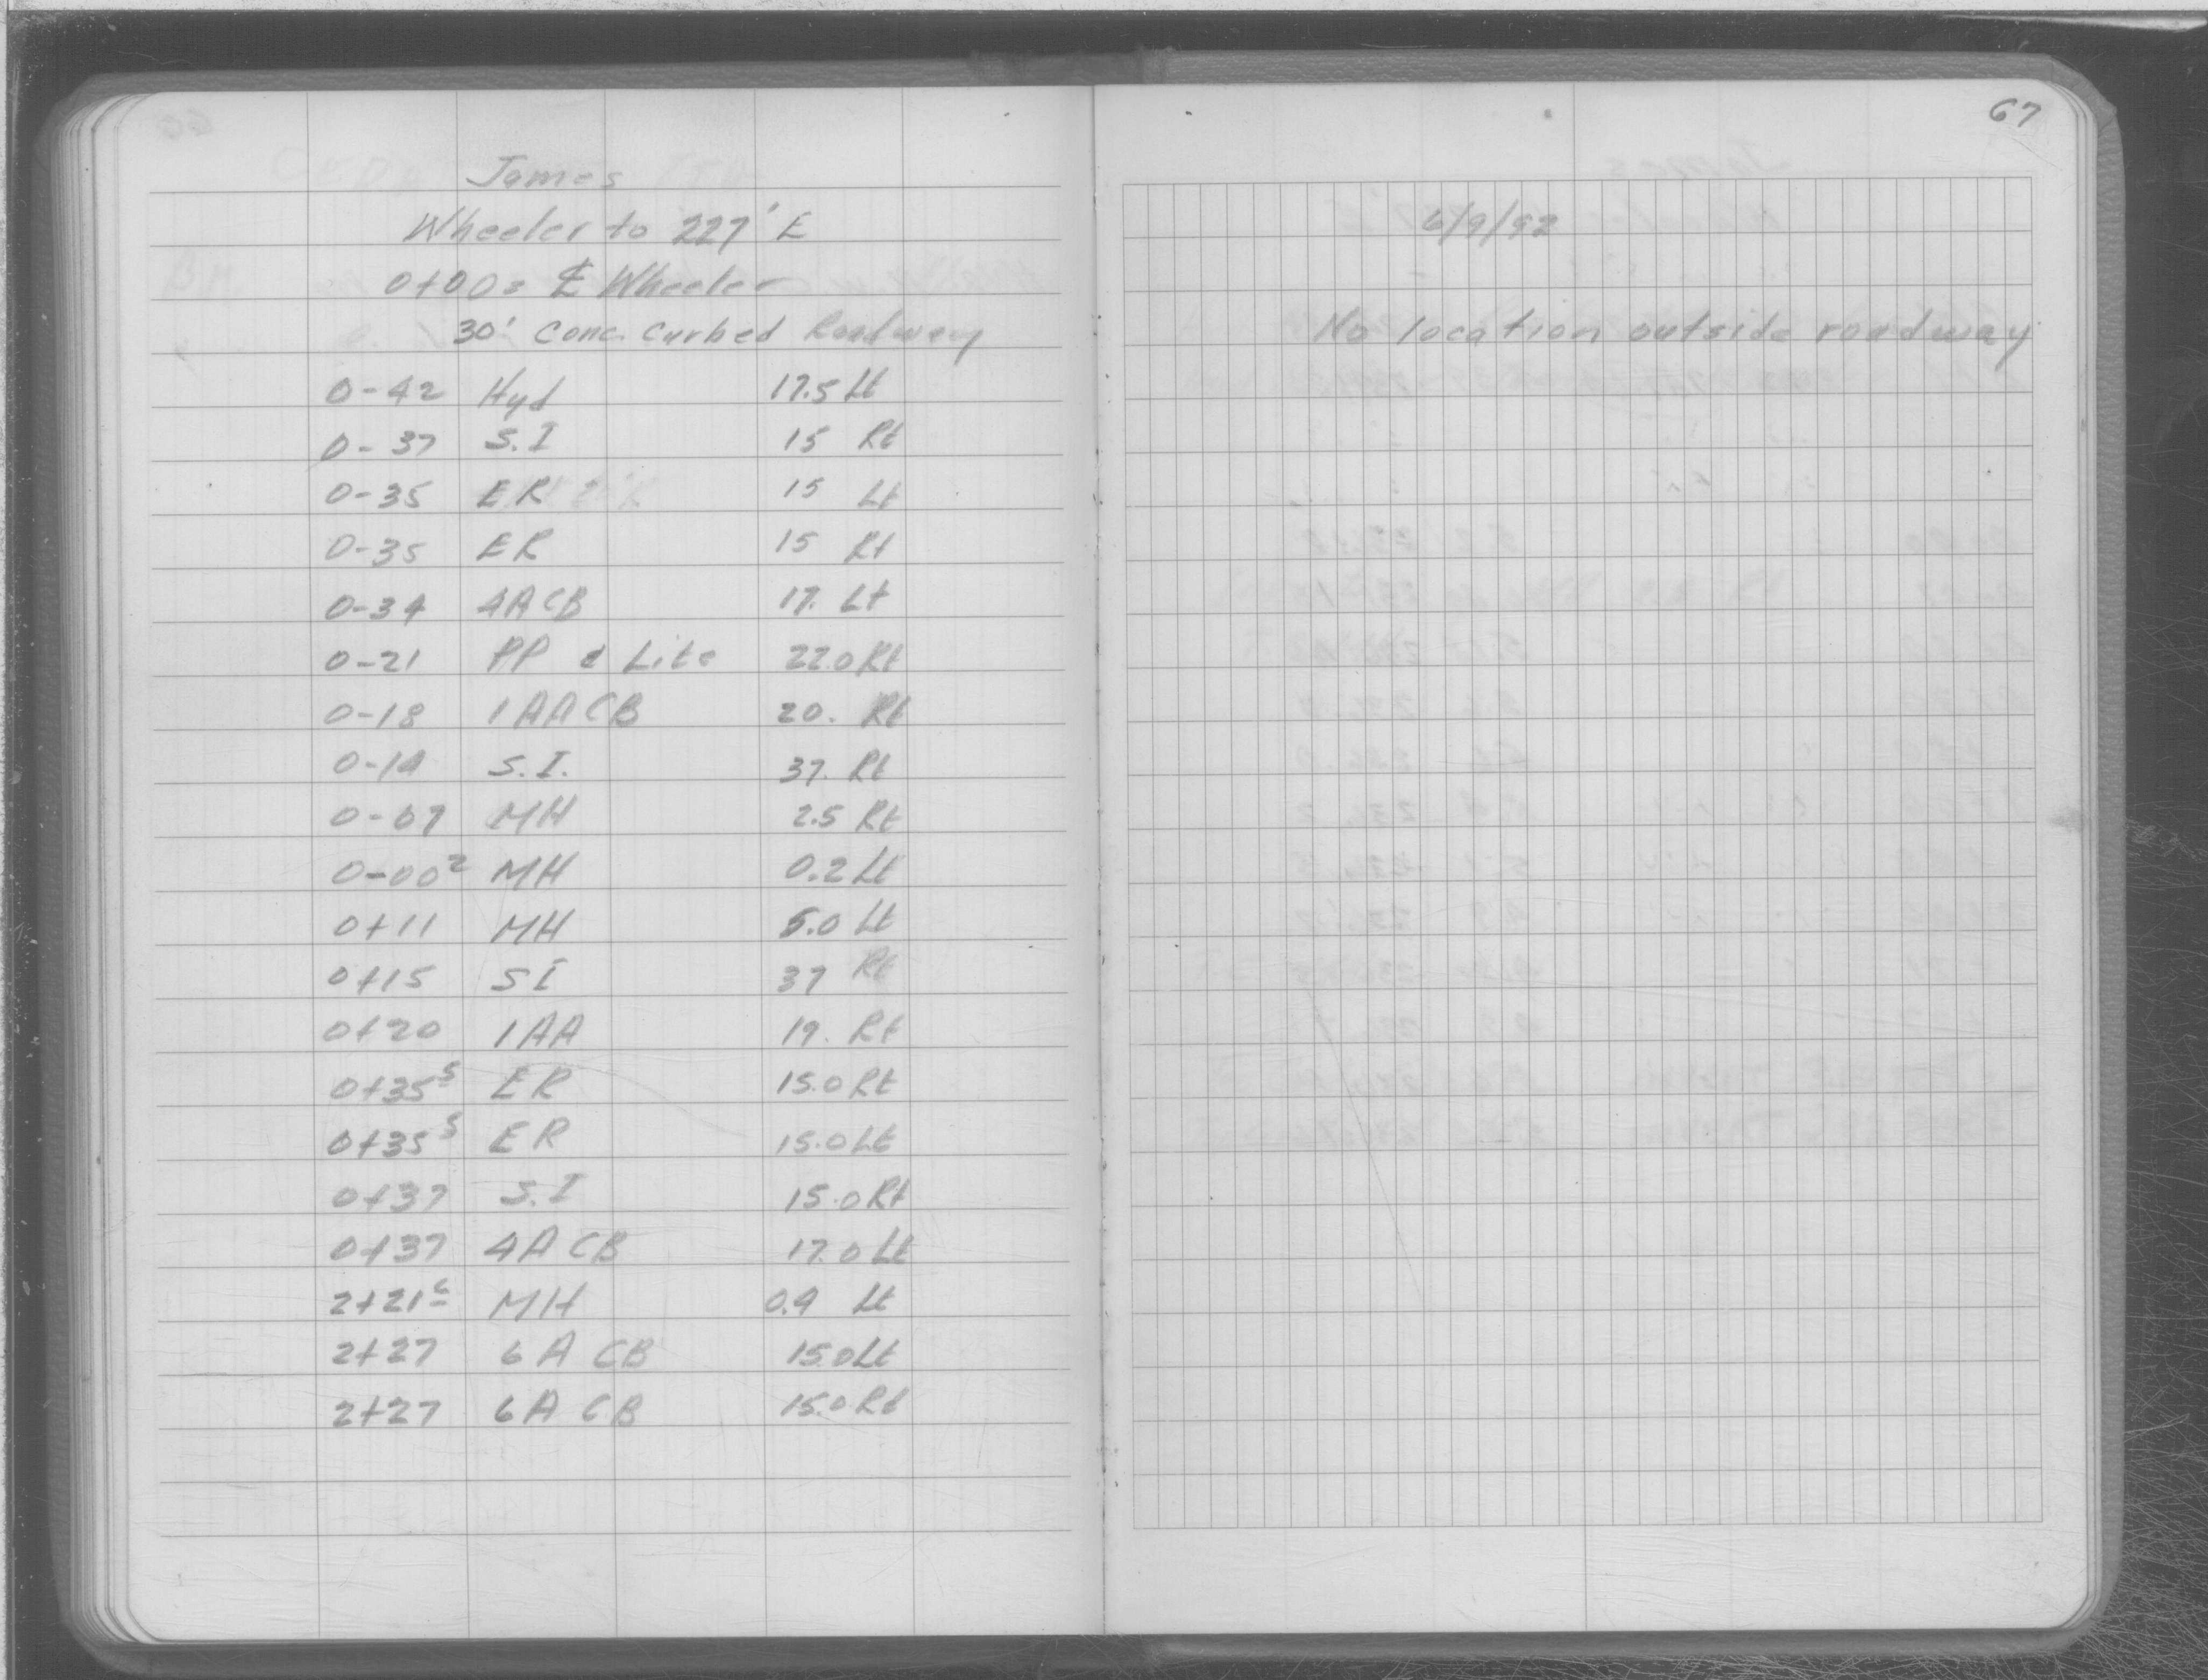 James
Wheeler to 227' E
0+00 = ℄ Wheeler
30' Conc. Curbed Roadway
0-42 Hyd 17.5 Lt
0-37 S.I 15 Rt
0-35 ER 15 Lt
0-35 ER 15 Rt
0-34 4A CB 17. Lt
0-21 PP & Lite 22.0 Rt
0-18 1AA CB 20. Rt
0-14 S.I. 37. Rt
0-07 MH 2.5 Rt
0-00² MH 0.2 Lt
0+11 MH 5.0 Lt
0+15 SI 37 Rt
0+20 1AA 19. Rt
0+35⁵ ER 15.0 Rt
0+35⁵ ER 15.0 Lt
0+37 S.I 15.0 Rt
0+37 4A CB 17.0 Lt
2+21⁶ MH 0.9 Lt
2+27 6A CB 15.0 Lt
2+27 6A CB 15.0 Rt
67
No location outside roadway